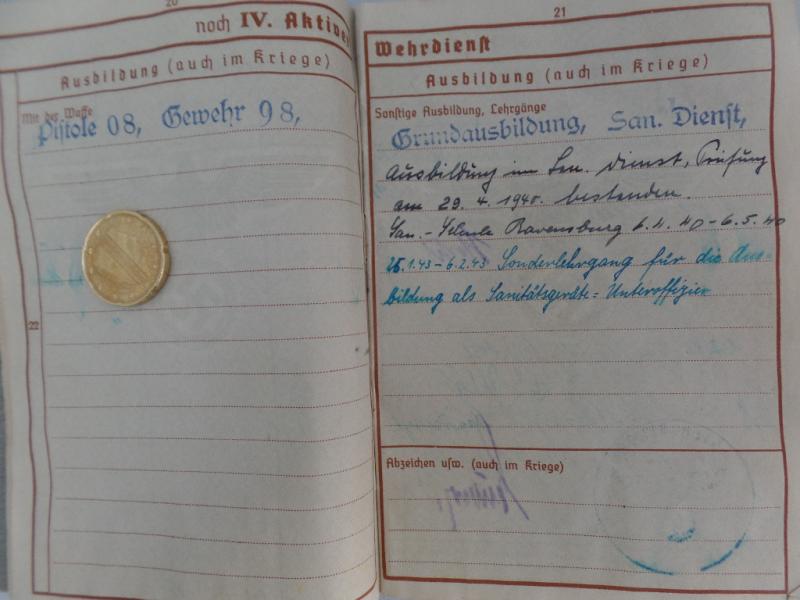 20
noch IV. Aktive
Ausbildung (auch im Kriege)
Mit der Waffe
Pistole 08, Gewehr 98,
22
21
Wehrdienst
Ausbildung (auch im Kriege)
Sonstige Ausbildung, Lehrgänge
Grundausbildung, San. Dienst,
Ausbildung im San. Dienst, Prüfung
am 29. 4. 1940. bestanden.
San.-Schule Ravensburg 6.4.40-6.5.40
25.1.43-6.2.43 Sonderlehrgang für die Aus-
bildung als Sanitätsgeräte=Unteroffizier
Abzeichen usw. (auch im Kriege)